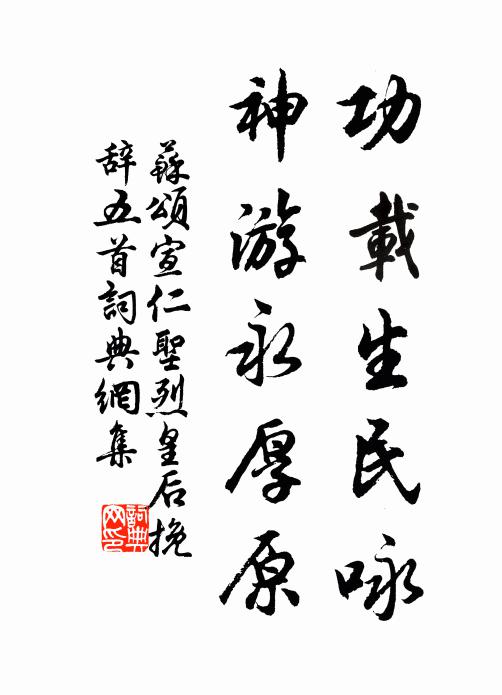 功載生民咏
神游永厚原
蘇頌宣仁聖烈皇后挽
辞五首詞典網集
詞典网印